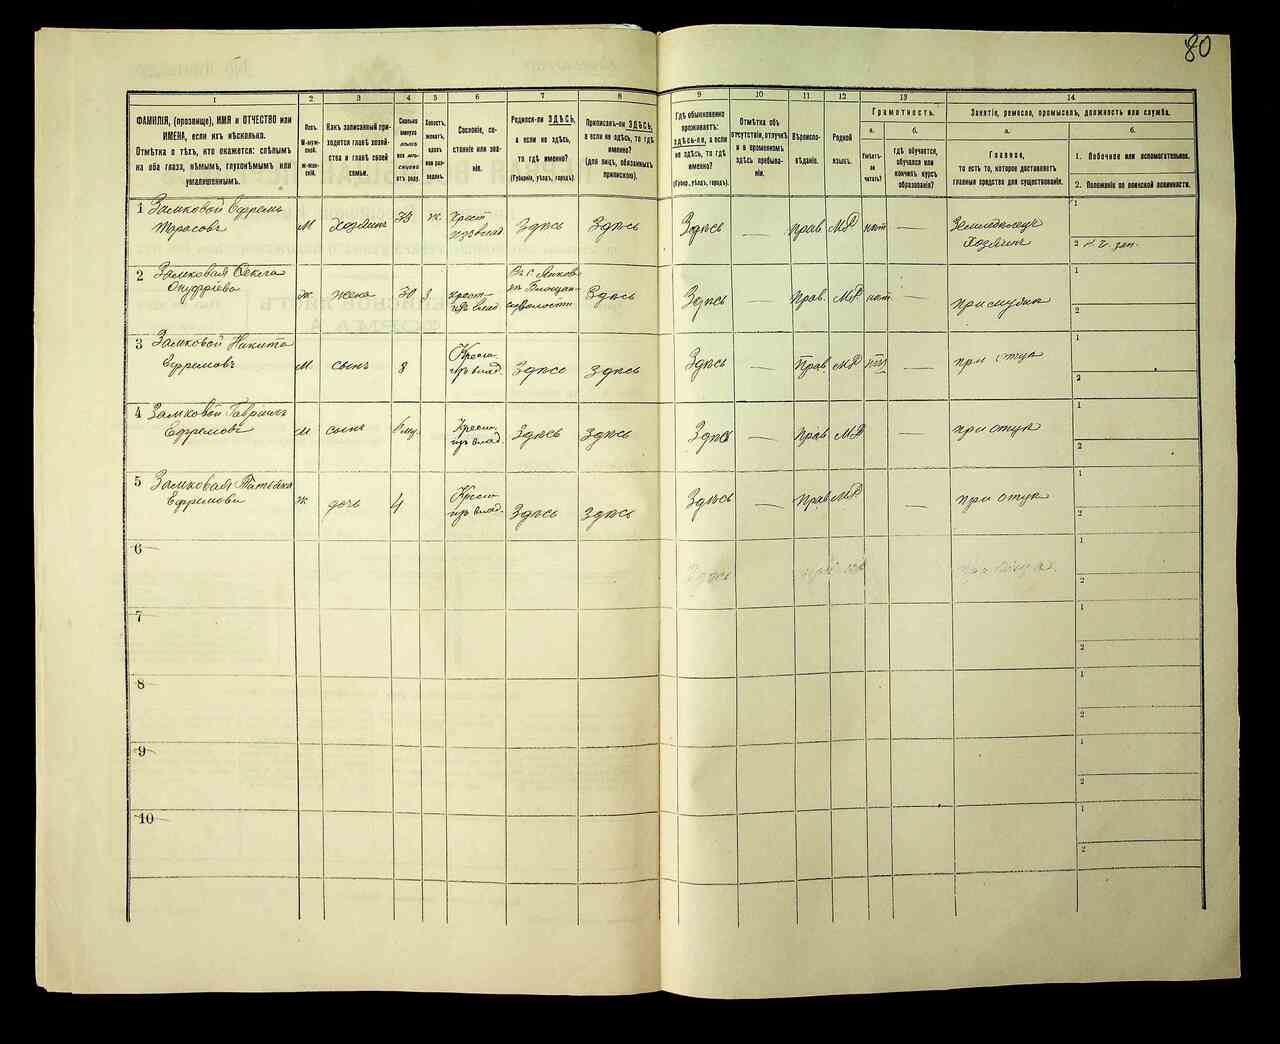 80
1
2
3
4
5
6
7
8
9
10
11
12
13
14
ФАМИЛІЯ, (прозвище), ИМЯ и ОТЧЕСТВО или
ИМЕНА, если ихъ нѣсколько.
Отмѣтка о тѣхъ, кто окажется: слѣпымъ
на оба глаза, нѣмымъ, глухонѣмымъ или
умалишеннымъ.
Полъ.
М-муж-
ской.
Ж-жен-
скій.
Какъ записанный при-
ходится главѣ хозяй-
ства и главѣ своей
семьи.
Сколько
минуло
лѣтъ
или мѣ-
сяцевъ
отъ роду.
Холостъ,
женатъ,
вдовъ
или раз-
веденъ.
Сословіе, со-
стояніе или зва-
ніе.
Родился-ли ЗДѢСЬ,
а если не здѣсь,
то гдѣ именно?
(Губернія, уѣздъ, городъ).
Приписанъ-ли ЗДѢСЬ,
а если не здѣсь, то гдѣ
именно?
(для лицъ, обязанныхъ
припискою).
Гдѣ обыкновенно
проживаетъ:
здѣсь-ли, а если
не здѣсь, то гдѣ
именно?
(Губерн., уѣздъ, городъ).
Отмѣтка объ
отсутствіи, отлучкѣ
и о временномъ
здѣсь пребыва-
ніи.
Вѣроиспо-
вѣданіе.
Родной
языкъ.
Грамотность.
а.
Умѣетъ-
ли
читать?
б.
гдѣ обучается,
обучался или
кончилъ курсъ
образованія?
Занятіе, ремесло, промыселъ, должность или служба.
а.
Главное,
то есть то, которое доставляетъ
главныя средства для существованія.
б.
1. Побочное или вспомогательное.
2. Положеніе по воинской повинности.
1 Замковой Ефремъ
Тарасовъ
М хозяинъ 33 ж. Крест
Здѣсь Здѣсь Здѣсь — Прав МР нѣт —
Хозяинъ
1
2
2 Замковая Фекла
Онуфріева
Ж жена 30 З.
Здѣсь Здѣсь — Прав. МР нѣт —
при мужѣ
1
2
3 Замковой Никита
Ефремовъ
М сынъ 8
Здѣсь Здѣсь Здѣсь — Прав. МР нѣт —
при отцѣ
1
2
4 Замковой Гавріилъ
Ефремовъ
М сынъ
Здѣсь Здѣсь Здѣсь — Прав МР —
при отцѣ
1
2
5 Замковая Татьяна
Ефремова
Ж дочь 4
Здѣсь Здѣсь Здѣсь — Прав МР —
при отцѣ
1
2
6
Здѣсь
1
2
7
1
2
8
1
2
9
1
2
10
1
2